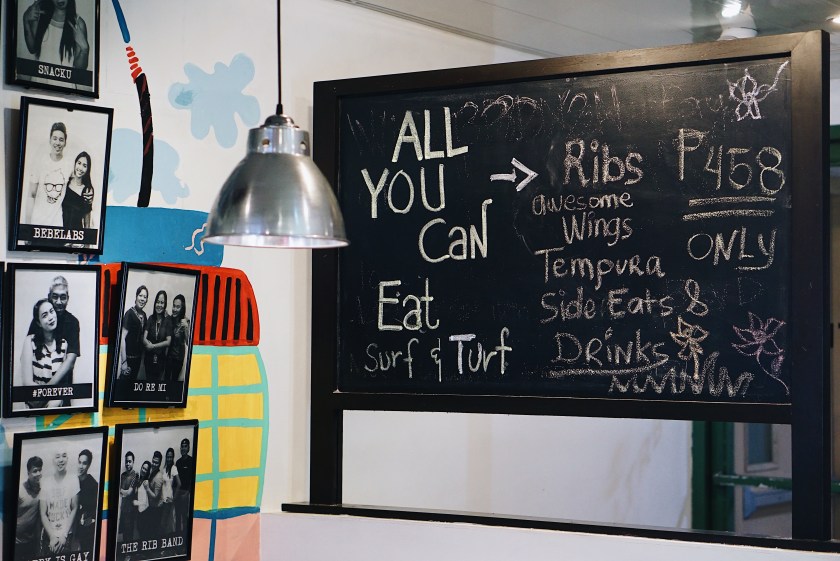 SNACKU
BEBELABS
#FOREVER
DO RE MI
IS GAY
THE RIB BAND
ALL
YOU
Can
Eat
Surf & Turf
→ Ribs
awesome
Wings
Tempura
Side Eats &
DRINKS
₱458
ONLY